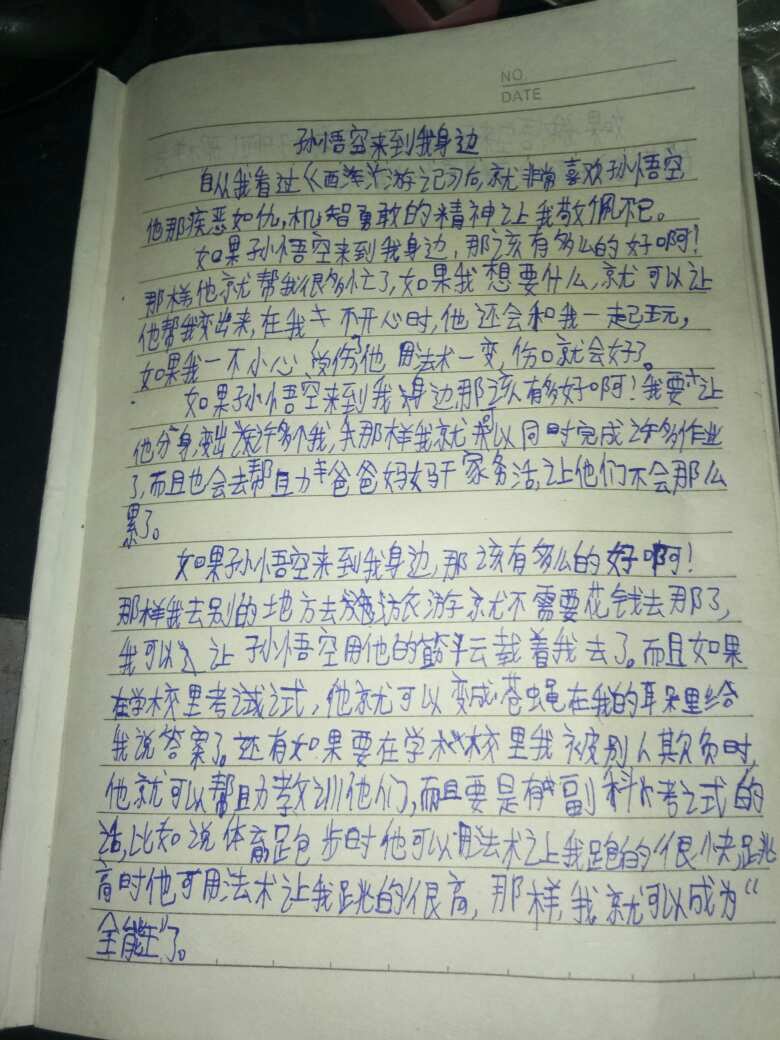 NO.
DATE
孙悟空来到我身边
自从我看过《西游记》后,就非常喜欢孙悟空
他那疾恶如仇,机智勇敢的精神让我敬佩不已。
如果孙悟空来到我身边,那该有多么的好啊!
那样他就帮我很多忙了,如果我想要什么,就可以让
他帮我变出来,在我不开心时,他还会和我一起玩,
如果我一不小心受伤了他用法术一变,伤口就会好了。
如果孙悟空来到我身边那该有多好啊!我要让
他分身,变出许多个我,那样我就可以同时完成许多作业
了,而且也会去帮助爸爸妈妈干家务活,让他们不会那么
累了。
如果孙悟空来到我身边,那该有多么的好啊!
那样我去别的地方去旅游就不需要花钱去那了,
我可以让孙悟空用他的筋斗云载着我去了。而且如果
在学校里考试,他就可以变成苍蝇在我的耳朵里给
我说答案了。还有如果要在学校里我被别人欺负时,
他就可以帮助教训他们,而且要是有副科考试的
话,比如说体育跑步时他可以用法术让我跑的很快,跳
高时他可用法术让我跳的很高,那样我就可以成为“
全能王”了。